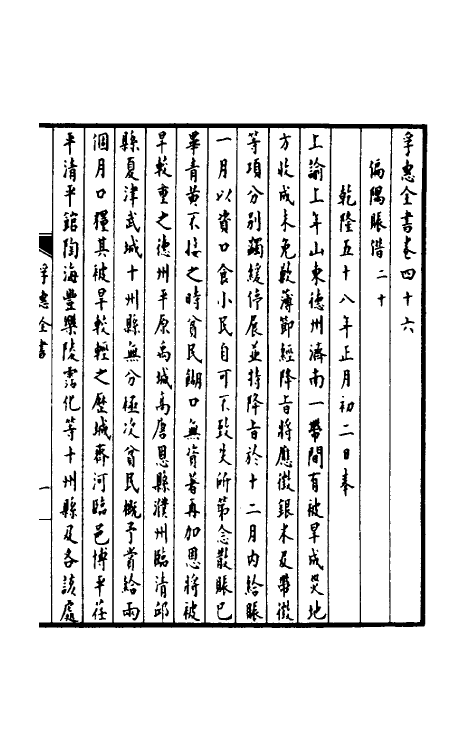 孚惠全書卷四十六
偏隅賑借二十
乾隆五十八年正月初二日奉
上諭上年山東德州濟南一帶間有被旱成災地
方收成未免歉薄節經降旨將應徵銀米及帶徵
等項分別蠲緩停展並特降旨於十二月內給賑
一月以資口食小民自可不致失所第念散賑已
畢青黃不接之時貧民餬口無資著再加恩將被
旱較重之德州平原禹城高唐恩縣濮州臨清邱
縣夏津武城十州縣無分極次貧民概予賞給兩
個月口糧其被旱較輕之歷城齊河臨邑博平茌
平清平館陶海豐樂陵霑化等十州縣及各該處
孚惠全書
一